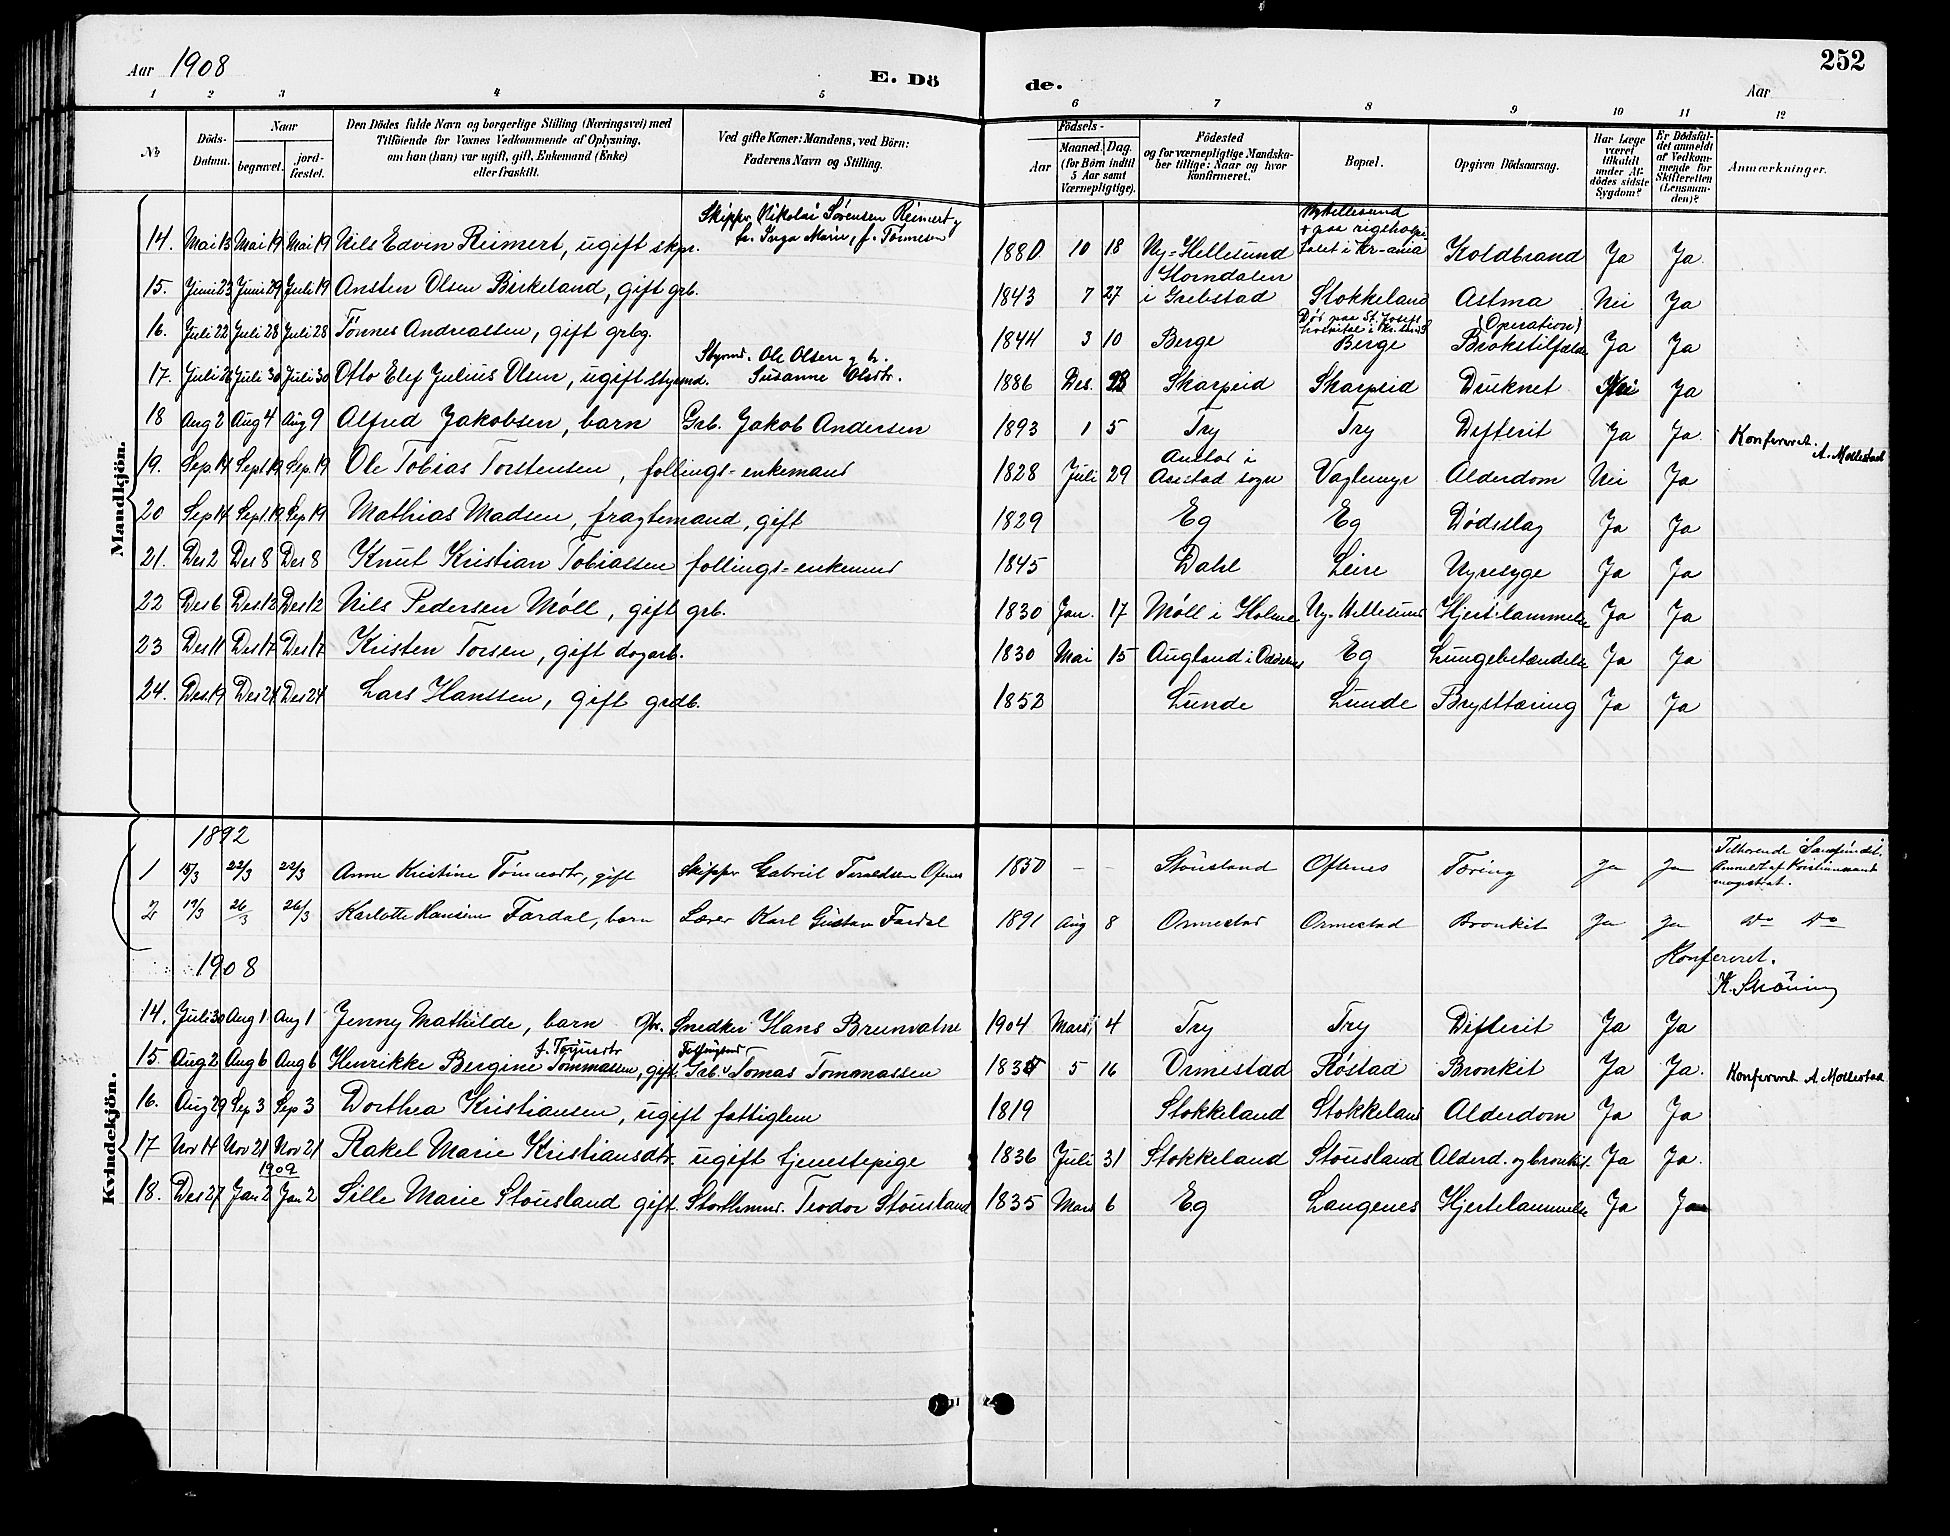 Aar 1908
E. Döde.
252
Aar
1 2 3 4 5 6 7 8 9 10 11 12
№
Döds-Datum.
Naar
begravet.
jordfæstet.
Den Dödes fulde Navn og borgerlige Stilling (Næringsvei) med
Tilföiende for Voxnes Vedkommende af Oplysning,
om han (hun) var ugift, gift, Enkemand (Enke)
eller fraskilt.
Ved gifte Koner: Mandens, ved Börn:
Faderens Navn og Stilling.
Födsels-
Aar
Maaned. Dag.
(for Börn indtil
5 Aar samt
Værnepligtige).
Födested
og for værnepligtige Mandska-
ber tillige: Naar og hvor
konfirmeret.
Bopæl.
Opgiven Dödsaarsag.
Har Læge
været
tilkaldt
under Af-
dödes sidste
Sygdom?
Er Dödsfal-
det anmeldt
af Vedkom-
mende for
Skifteretten
(Lensman-
den)?
Anmærkninger.
Mandkjön.
14. Mai 13 Mai 19 Mai 19 Nils Edvin Reimert, ugift skpr. Skippr. Nikolai Sörensen Reimert og hr. Inga Marie, f. Tönnesen 1880 10 18 Ny-Hellesund Ny Hellesund + paa rigshospitalet i Kr-ania Koldbrand Ja Ja
15. Juni 23 Juni 29 Juli 19 Ansten Olsen Birkeland, gift grb. 1843 7 27 Storndalen i Grebstad Stokkeland Astma Nei Ja
16. Juli 22 Juli 28 Juli 28 Tönnes Andreassen, gift grbg. 1844 3 10 Berge Död paa St. Josefs hospital i Kr.sand Berge (Operation) Brokstilfælde Ja Ja
17. Juli 26 Juli 30 Juli 30 Otto Elef Julius Olsen, ugift styrmd. Styrmd. Ole Olsen og h. Susanne Olsdtr. 1886 Des. 28 Skarpeid Skarpeid Druknet Nei Ja
18 Aug 2 Aug 4 Aug 9 Alfred Jakobsen, barn Grb. Jakob Andersen 1893 1 5 Try Try Difterit Ja Ja Konfereret. A. Mollestad
19. Sep 14 Sept 19 Sep. 19 Ole Tobias Torstensen, follings-enkemand 1828 Juli 29 sogn Vaglemyr Alderdom Nei Ja
20 Sep 14 Sept. 19 Sep 19 Mathias Madsen, fragtemand, gift 1829 Eg Eg Dödsslag Ja Ja
21. Des 2 Des 8 Des 8 Knut Kristian Tobiassen follings-enkemnd 1845 Dahl Leire Nyresyge Ja Ja
22 Des 6 Des. 12 Des 12 Nils Pedersen Möll, gift grb. 1830 Jan. 17 Möll i Holme Ny-Hellesund Hjertelammelse Ja Ja
23 Des 11 Des 17 Des 17 Kristen Torsen, gift dagarb. 1830 Mai 15 Augland i Oddernes Eg Lungebetændelse Ja Ja
24. Des. 19 Des 24 Des 24 Lars Hanssen, gift grdb. 1852 Lunde Lunde Brysttæring Ja Ja
Kvindekjön.
1892
1 15/3 22/3 22/3 Anne Kristine Tönnesdtr, gift Skippr Gabriel Teraldsen Ofenes 1850 - - Stousland Oftenes Tæring Ja Ja Tilhørende Sansfundet. Anmeldt af Kristianssands magistrat.
2 19/3 26/3 26/3 Karlotte Hansine Fardal, barn Lærer Karl Gustav Fardal 1891 Aug 8 Ormestad Ormestad Bronkit Ja Ja Do Do
Konfereret.
K. Sköning
1908
14. Juli 30 Aug 1. Aug 1 Jenny Mathilde, barn Gbr. Snedker Hans Brunvatne 1904 Mars 4 Try Try Difterit Ja Ja
15. Aug 2 Aug 6 Aug 6 Henrikke Bergine Tommassen, gift. Grb. Tomas Tommassen 5 16 Ormestad Röstad Bronkit Ja Ja. Konfereret A. Mollestad
16. Aug 29 Sep 3 Sep 3 Dorthea Kristiansen, ugift fattiglem 1819 Stokkeland Stokkeland Alderdom Ja Ja
17 Nov 14 Nov 21 Nov 21 Rakel Marie Kristiansdtr. ugift tjenestepige 1836 Juli 31 Stokkeland Stousland Alderd. og bronkit. Ja Ja.
18. Des 27 1909 Jan 2 Jan 2 Sille Marie Stousland gift. Teodor Stousland 1835 Mars 6 Eg Langenes Hjertelammelse Ja Ja